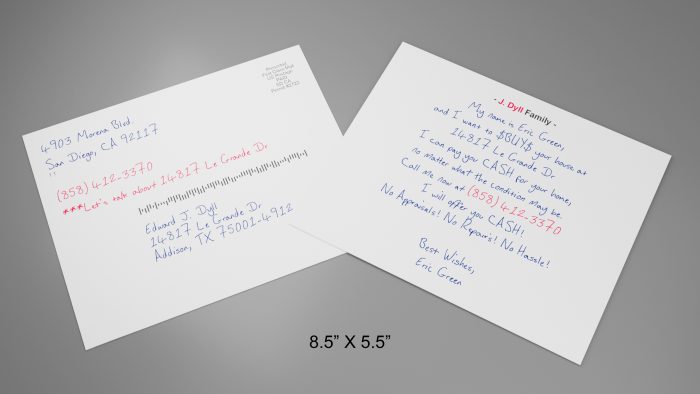 4903 Morena Blvd.
San Diego, CA 92117
(858) 412-3370
***Let's talk about 14817 Le Grande Dr
Edward J. Dyll
14817 Le Grande Dr
Addison, TX 75001-4912
- J. Dyll Family -
My name is Eric Green,
and I want to $BUY$ your house at
14817 Le Grande Dr
I can pay you CASH for your home,
no matter what the condition may be.
Call me now at (858) 412-3370
I will offer you CASH!
No Appraisals! No Repairs! No Hassle!
Best Wishes,
Eric Green
8.5” X 5.5”